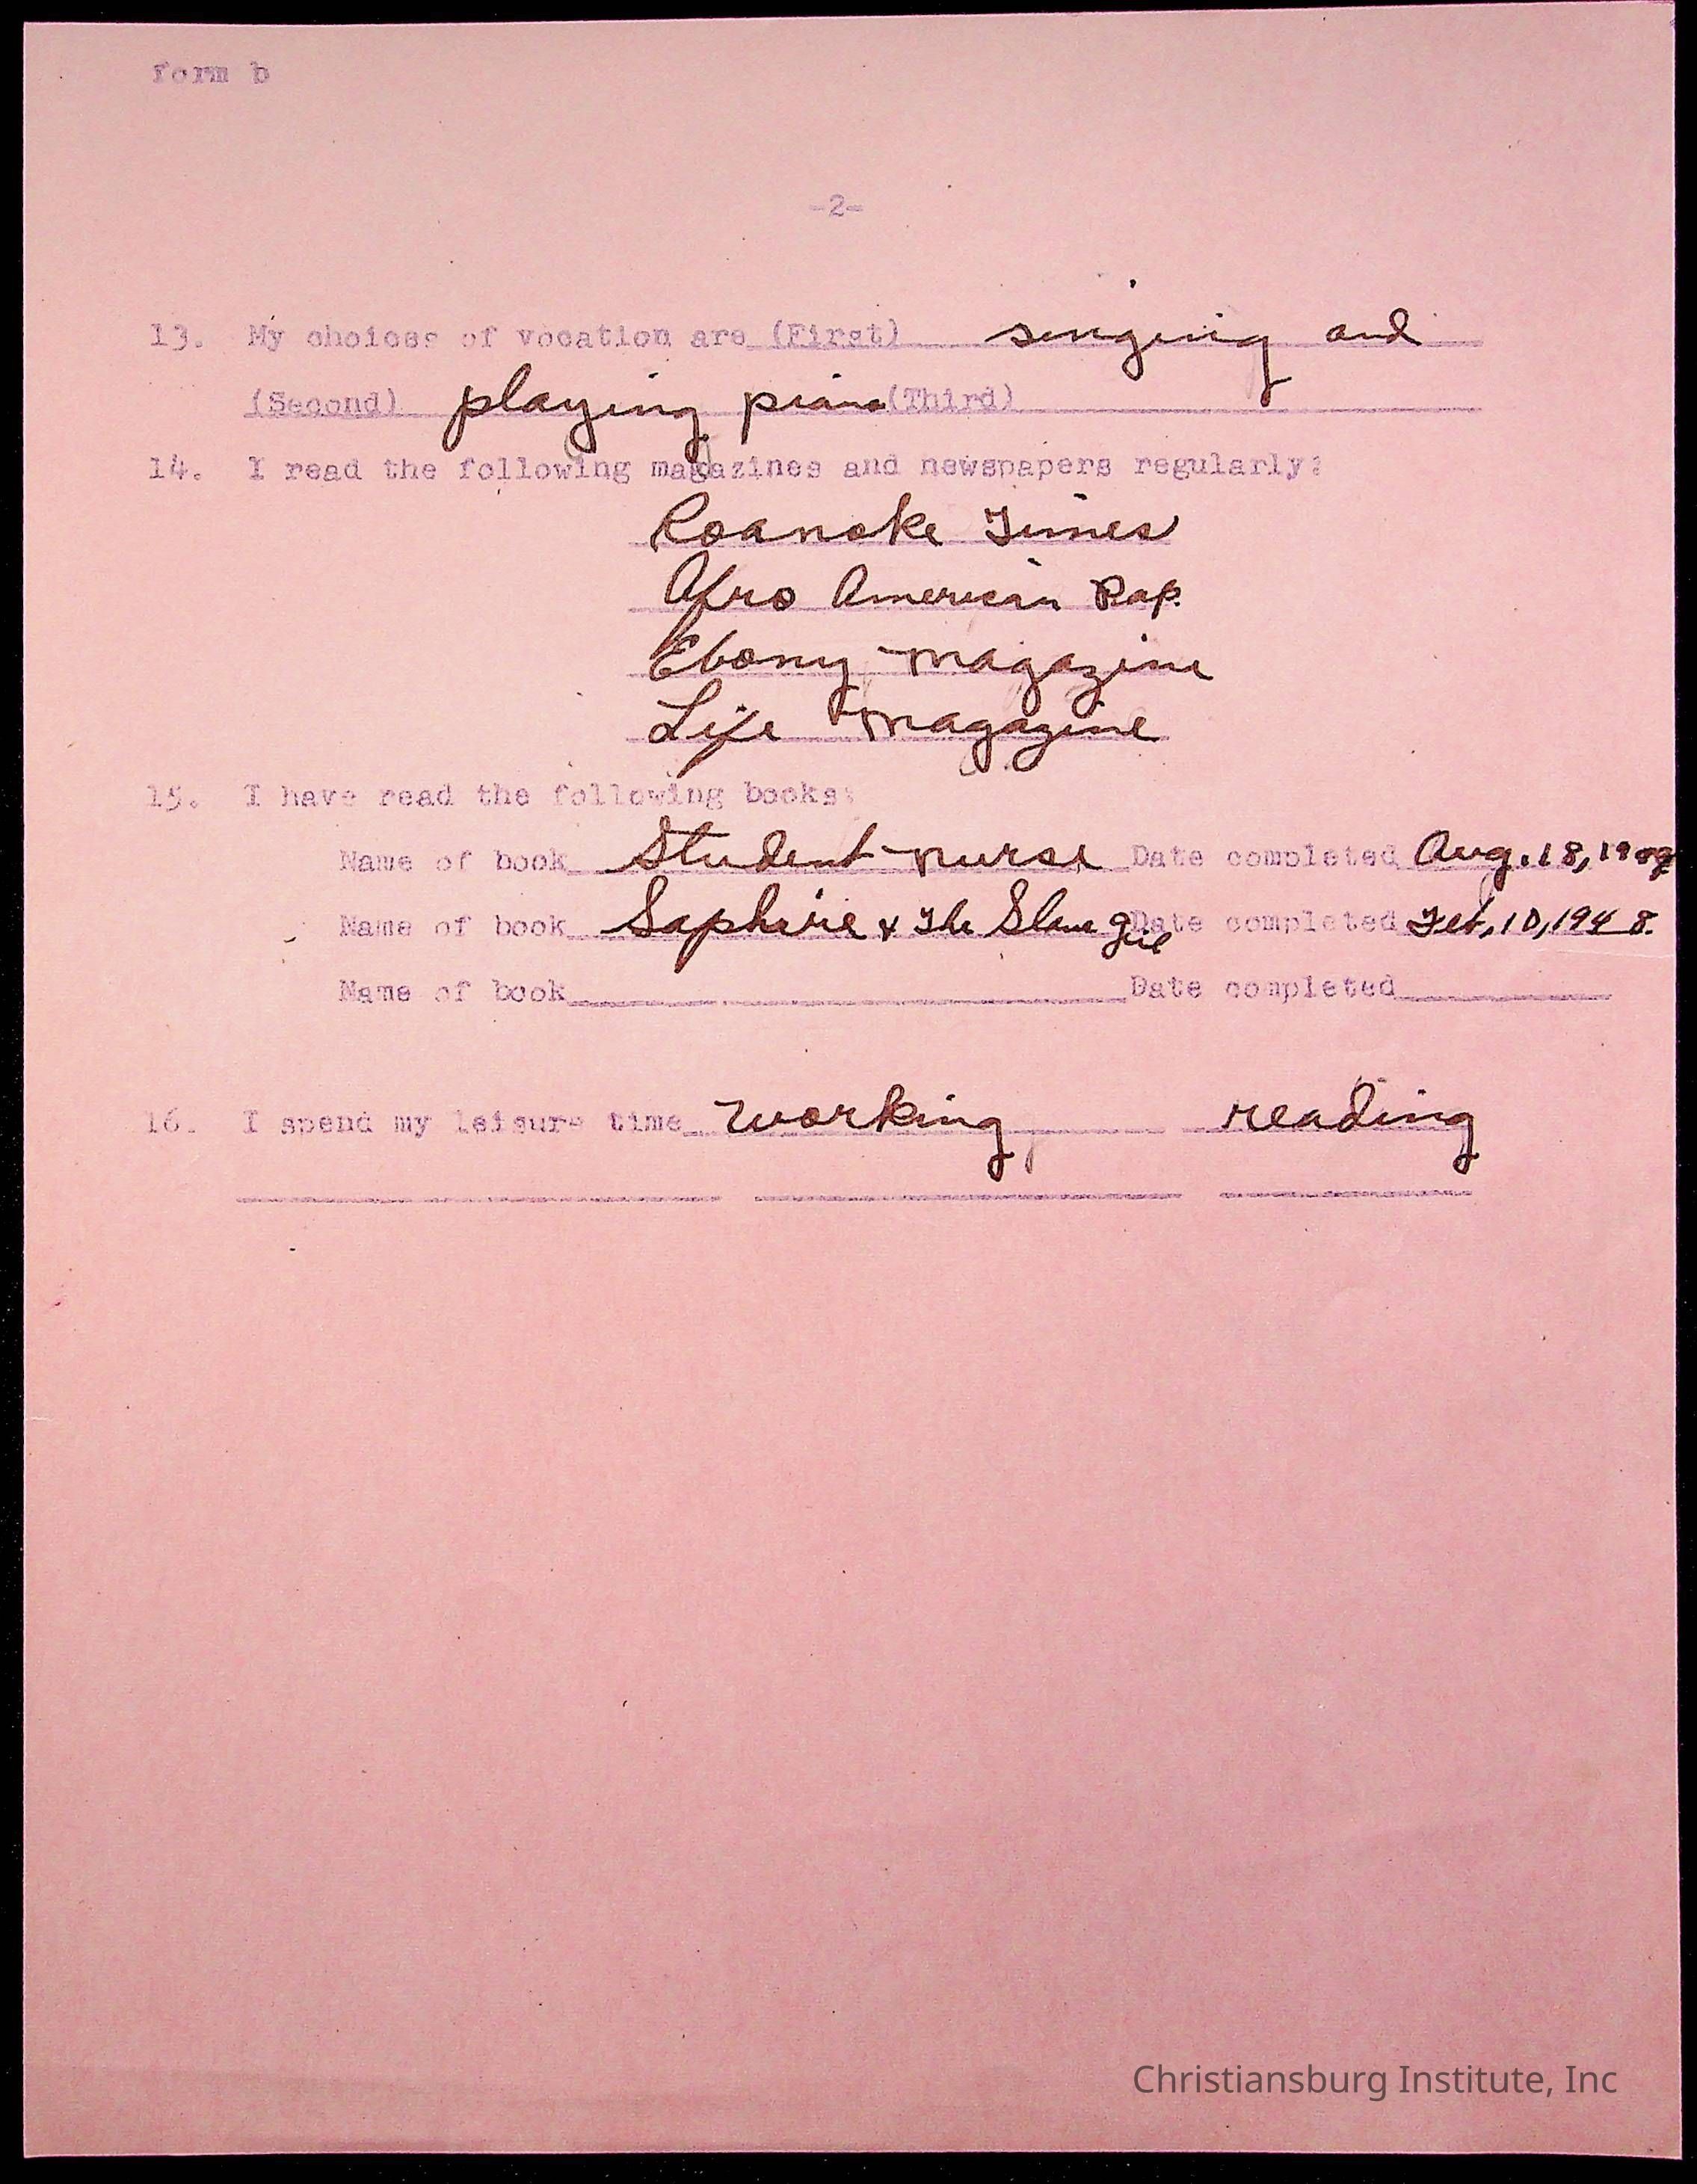 form b
-2-
13. My choices of vocation are (First) singing and
(Second) playing piano (Third)
14. I read the following magazines and newspapers regularly:
Roanoke Times
Afro American Pap.
Ebony magazine
Life magazine
15. I have read the following books:
Name of book Student nurse Date completed Aug. 18, 19
Name of book Saphire & The Slave girl Date completed Feb, 10, 1948.
Name of book Date completed
16. I spend my leisure time working, reading
Christiansburg Institute, Inc